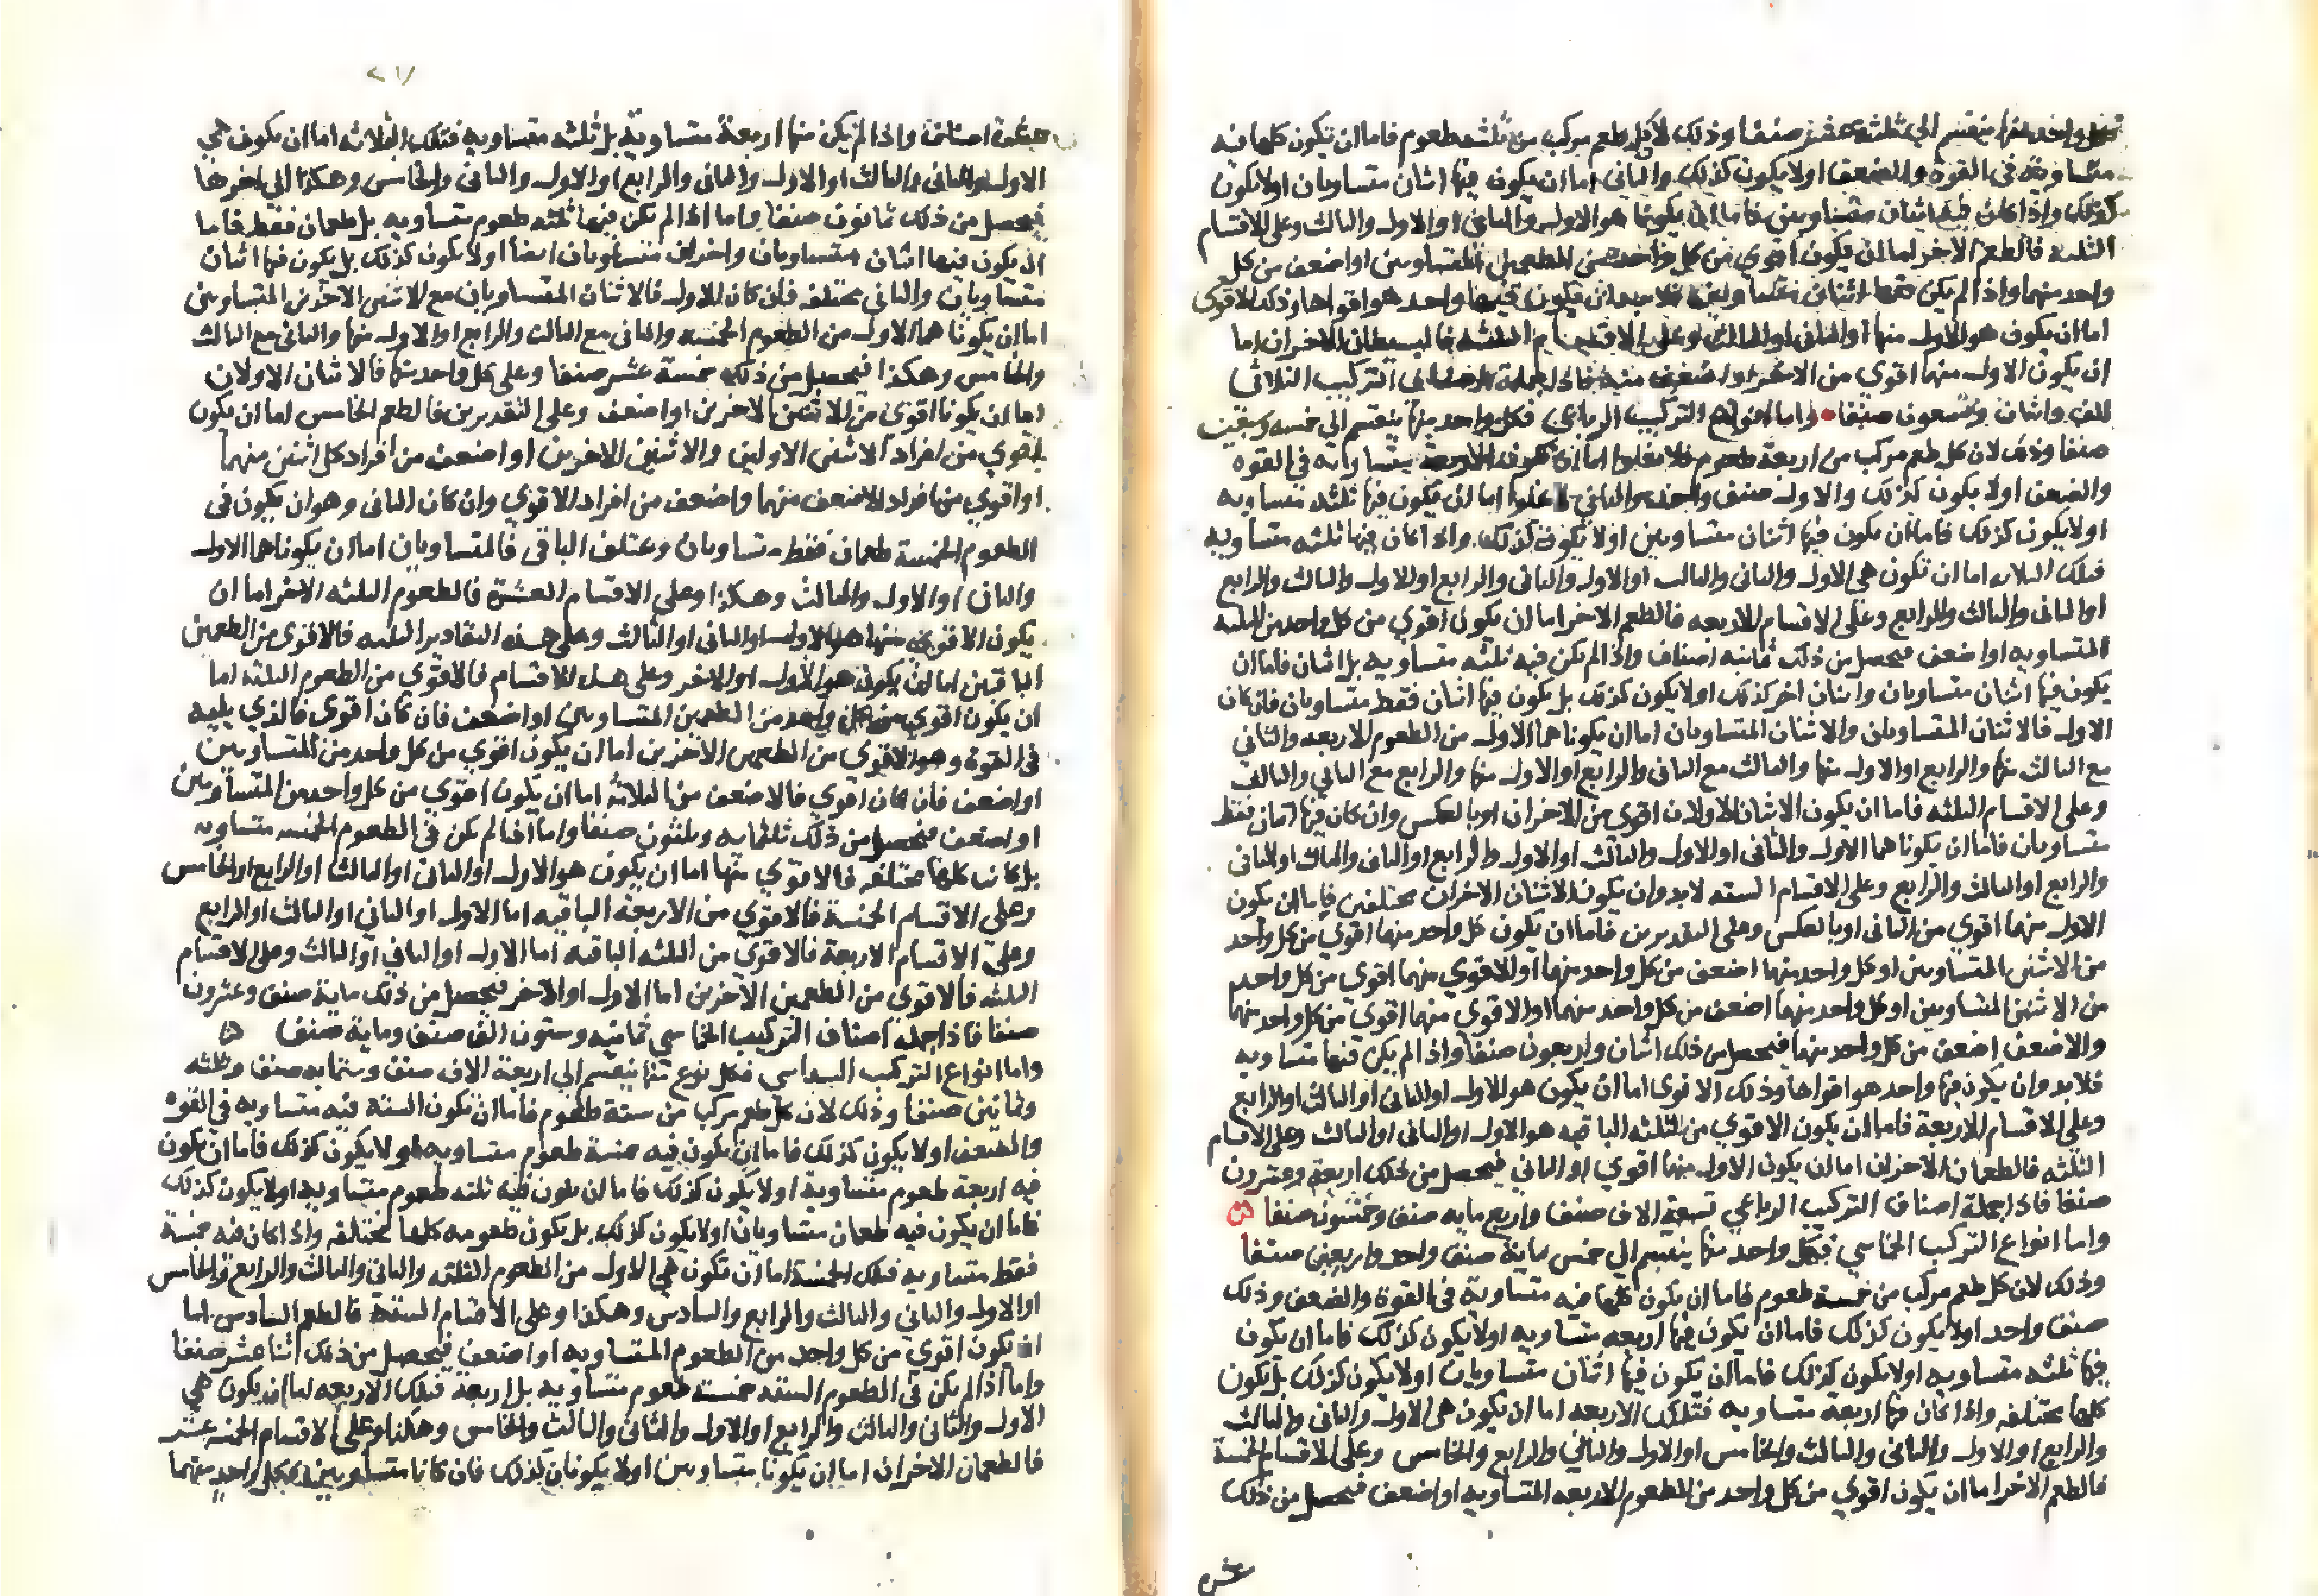 فكل واحد منها ينقسم الى ثلثة عشر صنفا وذلك لان كل طعم مركب من ثلثه طعوم فاما ان تكون كلها فيه
متساوية فى القوة والضعف اولا يكون كذلك والثانى اما ان يكون فيها اثنان متساويان اولا يكون
كذلك واذا كان فيها اثنان متساويين فاما ان يكونا هو الاول والثانى او الاول والثالث وعلى الاقسام
الثلثه فالطعم الاخر اما ان يكون اقوي من كل واحد من الطعمين المتساويين او اضعف من كل
واحد منهما واذا لم يكن فيها اثنان متساويين فلابد ان يكون فيها واحد هو اقواها وذلك الاقوى
اما ان يكون هو الاول منها او الثانى او الثالث وعلى الاقسام الثلثه فالبسيطان الاخران اما
ان يكون الاول منهما اقوي من الاخر او اضعف منه فاذا جملة اصناف التركيب الثلاثى
الف واثنان وتسعون صنفا واما انواع التركيب الرباعى فكل واحد منها ينقسم الى خمسه وسبعين
صنفا وذلك لان كل طعم مركب من اربعة طعوم فلا يخلوا اما ان تكون الاربعة متساويه فى القوه
والضعف اولا يكون كذلك والاول صنف واحد والثانى لا يخلوا اما ان يكون فيها ثلثه متساويه
اولا يكون كذلك فاما ان يكون فيها اثنان متساويين اولا يكون كذلك واذا كان فيها ثلثه متساويه
فتلك الثلاثه اما ان تكون هى الاول والثانى والثالث او الاول والثانى والرابع او الاول والثالث والرابع
او الثانى والثالث والرابع وعلى الاقسام الاربعه فالطعم الاخر اما ان يكون اقوي من كل واحد من الثلثه
المتساويه او اضعف فيحصل من ذلك ثمانيه اصناف واذا لم تكن فيه ثلثه متساويه بل اثنان فاما ان
يكون فيها اثنان متساويان واثنان اخر كذلك اولا يكون كذلك بل يكون فيها اثنان فقط متساويان فان كان
الاول فالاثنان المتساويان والاثنان المتساويان اما ان يكونا هما الاول من الطعوم الاربعه والثاني
مع الثالث منها والرابع او الاول منها والثالث مع الثانى والرابع او الاول منها والرابع مع الثاني والثالث
وعلى الاقسام الثلثه فاما ان يكون الاثنان الاولان اقوي من الاخران او بالعكس وان كان فيها اثنان فقط
متساويان فاما ان يكونا هما الاول والثانى او الاول والثالث او الاول والرابع او الثانى والثالث او الثانى
والرابع او الثالث والرابع وعلى الاقسام السته لابد وان يكون الاثنان الاخران مختلفين فاما ان يكون
الاول منهما اقوي من الثانى او بالعكس وعلى التقديرين فاما ان يكون كل واحد منهما اقوي من كل واحد
من الاثنين المتساويين او كل واحد منهما اضعف من كل واحد منهما او الاقوي منهما اقوى من كل واحد
من الاثنين المتساويين او كل واحد منهما اضعف من كل واحد منهما او الاقوي منهما اقوي من كل واحد منهما
والاضعف اضعف من كل واحد منهما فيحصل من ذلك اثنان واربعون صنفا واذا لم يكن فيها متساويه
فلابد وان يكون فيها واحد هو اقواها وذلك الاقوى اما ان يكون هو الاول او الثانى او الثالث او الرابع
وعلى الاقسام الاربعة فاما ان يكون الاقوي من الثلثه الباقيه هو الاول او الثانى او الثالث وعلى الاقسام
الثلثه فالطعمان الاخران اما ان يكون الاول منهما اقوي او الثاني فيحصل من ذلك اربعة وعشرون
صنفا فاذا جملة اصناف التركيب الرباعي تسعة الاف صنف واربع مايه صنف وخمسون صنفا
واما انواع التركيب الخماسي فكل واحد منها ينقسم الى خمس ماية صنف واحد واربعين صنفا
وذلك لان كل طعم مركب من خمسة طعوم فاما ان يكون كلها فيه متساوية فى القوة والضعف وذلك
صنف واحد اولا يكون كذلك فاما ان يكون فيها اربعه متساويه اولا يكون كذلك فاما ان يكون
فيها ثلثه متساويه اولا يكون كذلك فاما ان يكون فيها اثنان متساويان اولا يكون كذلك بل يكون
كلها مختلفه واذا كان فيها اربعة متساويه فتلك الاربعه اما ان يكون هى الاول والثانى والثالث
والرابع او الاول والثانى والثالث والخامس او الاول والثانى والرابع والخامس وعلى الاقسام الخمسة
فالطعم الاخر اما ان يكون اقوي من كل واحد من الطعوم الاربعه المتساويه او اضعف فيحصل من ذلك
عشره
٢١٧
عشرة اصناف واذا لم يكن منها اربعة متساوية بل ثلثه متساويه فتلك الثلاثه اما ان يكون هى
الاول والثانى والثالث او الاول والثانى والرابع او الاول والثانى والخامس وهكذا الى اخرها
فيحصل من ذلك ثمانون صنفا واما اذا لم تكن فيها ثلثه طعوم متساويه بل طعمان فقط فاما
ان يكون فيها اثنان متساويان واخران متساويان ايضا اولا يكون كذلك بل يكون فيها اثنان
متساويان والثانى مختلفه فان كان الاول فالاثنان المتساويان مع الاثنين الاخرين المتساويين
اما ان يكونا هما الاول من الطعوم الخمسه والثانى مع الثالث والرابع او الاول منها والثانى مع الثالث
والخامس وهكذا فيحصل من ذلك خمسة عشر صنفا وعلى كل واحد منها فالاثنان الاولان
اما ان يكونا اقوى من الاثنين الاخرين او اضعف وعلى التقديرين فالطعم الخامس اما ان يكون
اقوي من افراد الاثنين الاولين والاثنين الاخرين او اضعف من افراد كل اثنين منهما
او اقوي من افراد الاضعف منهما واضعف من افراد الاقوي وان كان الثانى وهو ان يكون فى
الطعوم الخمسة طعمان فقط متساويان ومختلف الباقى فالمتساويان اما ان يكونا هما الاول
والثانى او الاول والثالث وهكذا وعلى الاقسام العشرة فالطعوم الثلثه الاخر اما ان
يكون الاقوي منها هو الاول او الثانى او الثالث وعلى هذه التقادير الثلثه فالاقوى من الطعمين
الباقيين اما ان يكون هو الاول او الاخر وعلى هذه الاقسام فالاقوي من الطعوم الثلثه اما
ان يكون اقوي من كل واحد من الطعمين المتساويين او اضعف فان كان اقوى فالذي يليه
فى القوة وهو الاقوي من الطعمين الاخرين اما ان يكون اقوي من كل واحد من المتساويين
او اضعف فان كان اقوي فالاضعف من الثلاثه اما ان يكون اقوي من كل واحد من المتساويين
او اضعف فيحصل من ذلك ثلثمايه وثلثون صنفا واما اذا لم يكن فى الطعوم الخمسه متساويه
بل كانت كلها مختلفه فالاقوي منها اما ان يكون هو الاول او الثانى او الثالث او الرابع او الخامس
وعلى الاقسام الخمسة فالاقوي من الاربعة الباقيه اما الاول او الثاني او الثالث او الرابع
وعلى الاقسام الاربعة فالاقوي من الثلثه الباقيه اما الاول او الثاني او الثالث وعلى الاقسام
الثلثه فالاقوي من الطعمين الاخرين اما الاول او الاخر فيحصل من ذلك ماية صنف وعشرون
صنفا فاذا جملة اصناف التركيب الخماسي ثمانيه وستون الف صنف وماية صنف
واما انواع التركيب السداسي فكل نوع منها ينقسم الى اربعة الاف صنف وستمايه صنف وثلثه
وثمانين صنفا وذلك لان كل طعم مركب من ستة طعوم فاما ان تكون الستة فيه متساويه في القوه
والضعف اولا يكون كذلك فاما ان يكون فيه خمسة طعوم متساويه اولا يكون كذلك فاما ان يكون
فيه اربعة طعوم متساوية اولا يكون كذلك فاما ان يكون فيه ثلثه طعوم متساويه اولا يكون كذلك
فاما ان يكون فيه طعمان متساويان اولا يكون كذلك بل يكون طعومه كلها مختلفه واذا كان فيه خمسة
فقط متساويه فتلك الخمسة اما ان تكون هى الاول من الطعوم الثلثه والثانى والثالث والرابع والخامس
او الاول والثانى والثالث والرابع والسادس وهكذا وعلى الاقسام الستة فالطعم السادس اما
ان يكون اقوي من كل واحد من الطعوم المتساويه او اضعف فيحصل من ذلك اثنا عشر صنفا
واما اذا لم يكن فى الطعوم السته خمسة طعوم متساويه بل اربعة فتلك الاربعه اما ان يكون هي
الاول والثانى والثالث والرابع او الاول والثانى والثالث والخامس وهكذا وعلى الاقسام الخمسه عشر
فالطعمان الاخران اما ان يكونا متساويين اولا يكونان كذلك فان كانا متساويين فكل واحد منهما